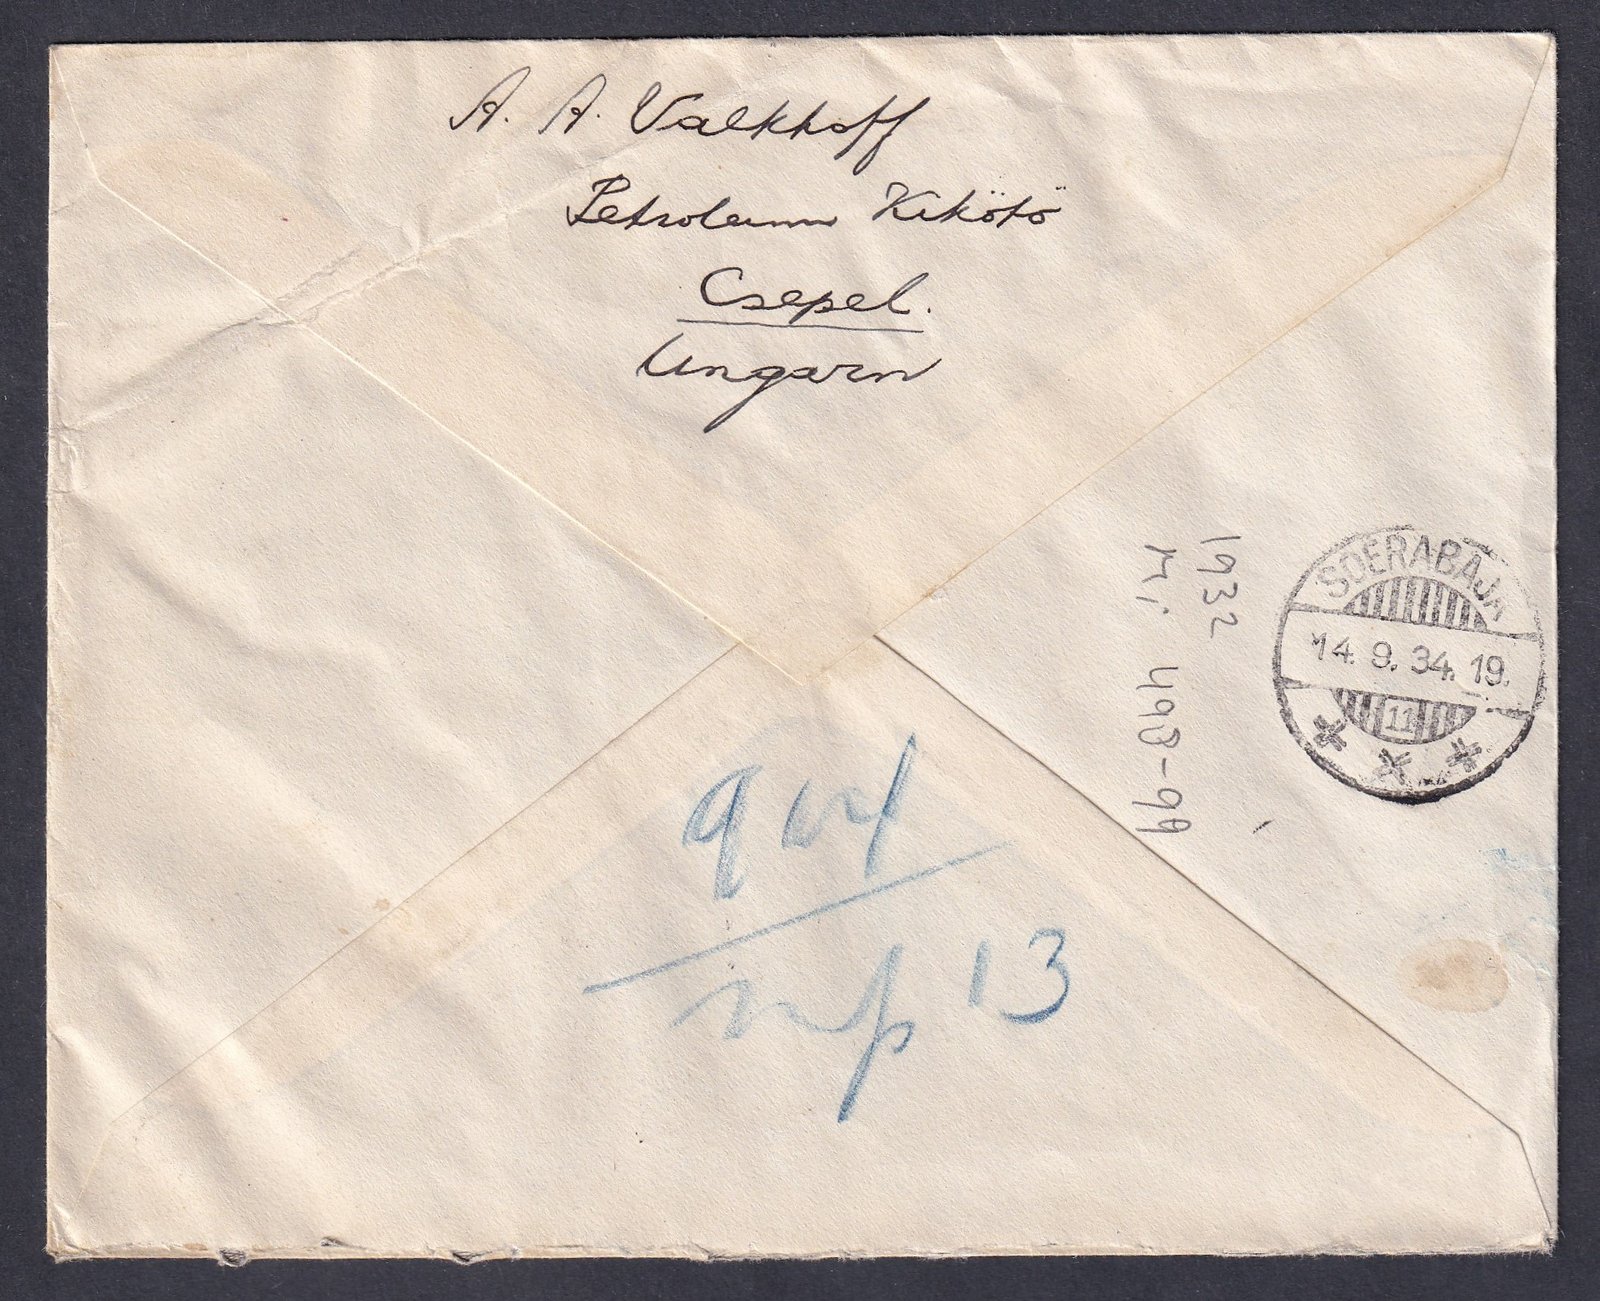 A. A. Valkhoff
Petroleum Kikötö
Csepel.
Ungarn
SOERABAJA
14. 9. 34. 19.
11
1932
Mi 498-99
13